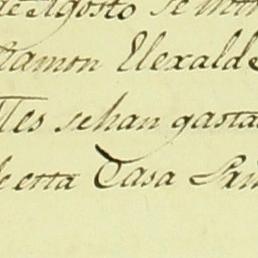 de Agosto se
Ramon Elexalde
se han gasta
de esta Casa